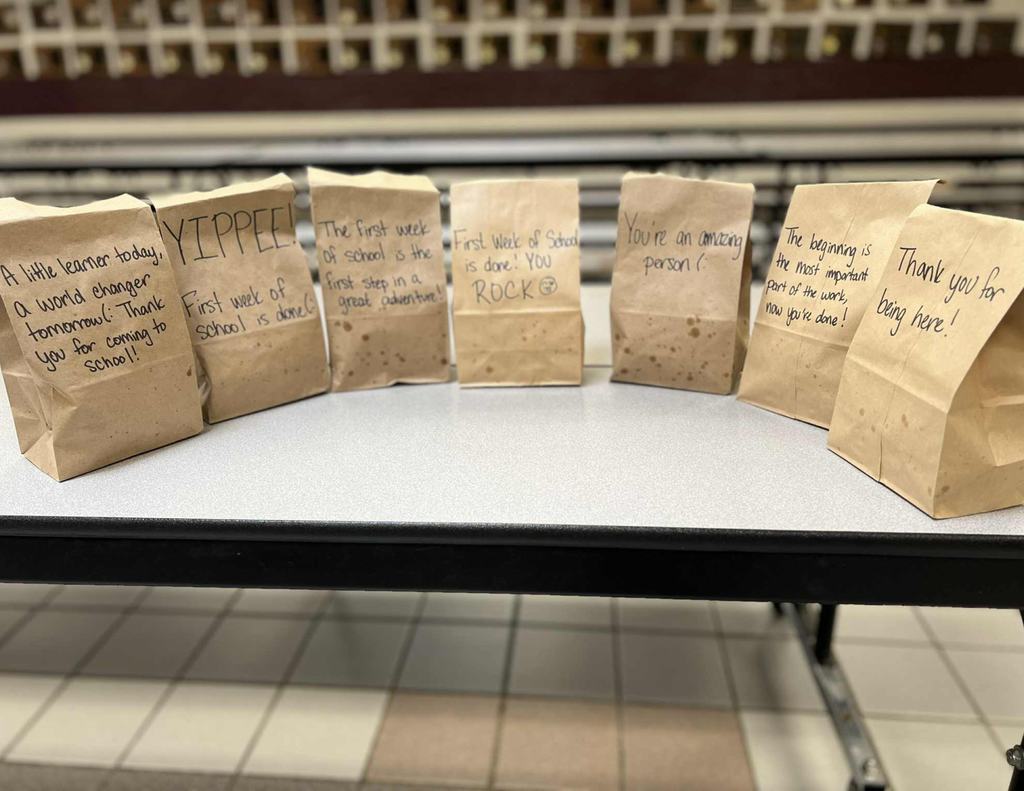 A little learner today,
a world changer
tomorrow(: Thank
you for coming to
school!
YIPPEE!
First week of
school is done(:
The first week
of school is the
first step in a
great adventure!
First Week of School
is done! You
ROCK
You're an amazing
person (:
The beginning is
the most important
part of the work,
now you're done!
Thank you for
being here!